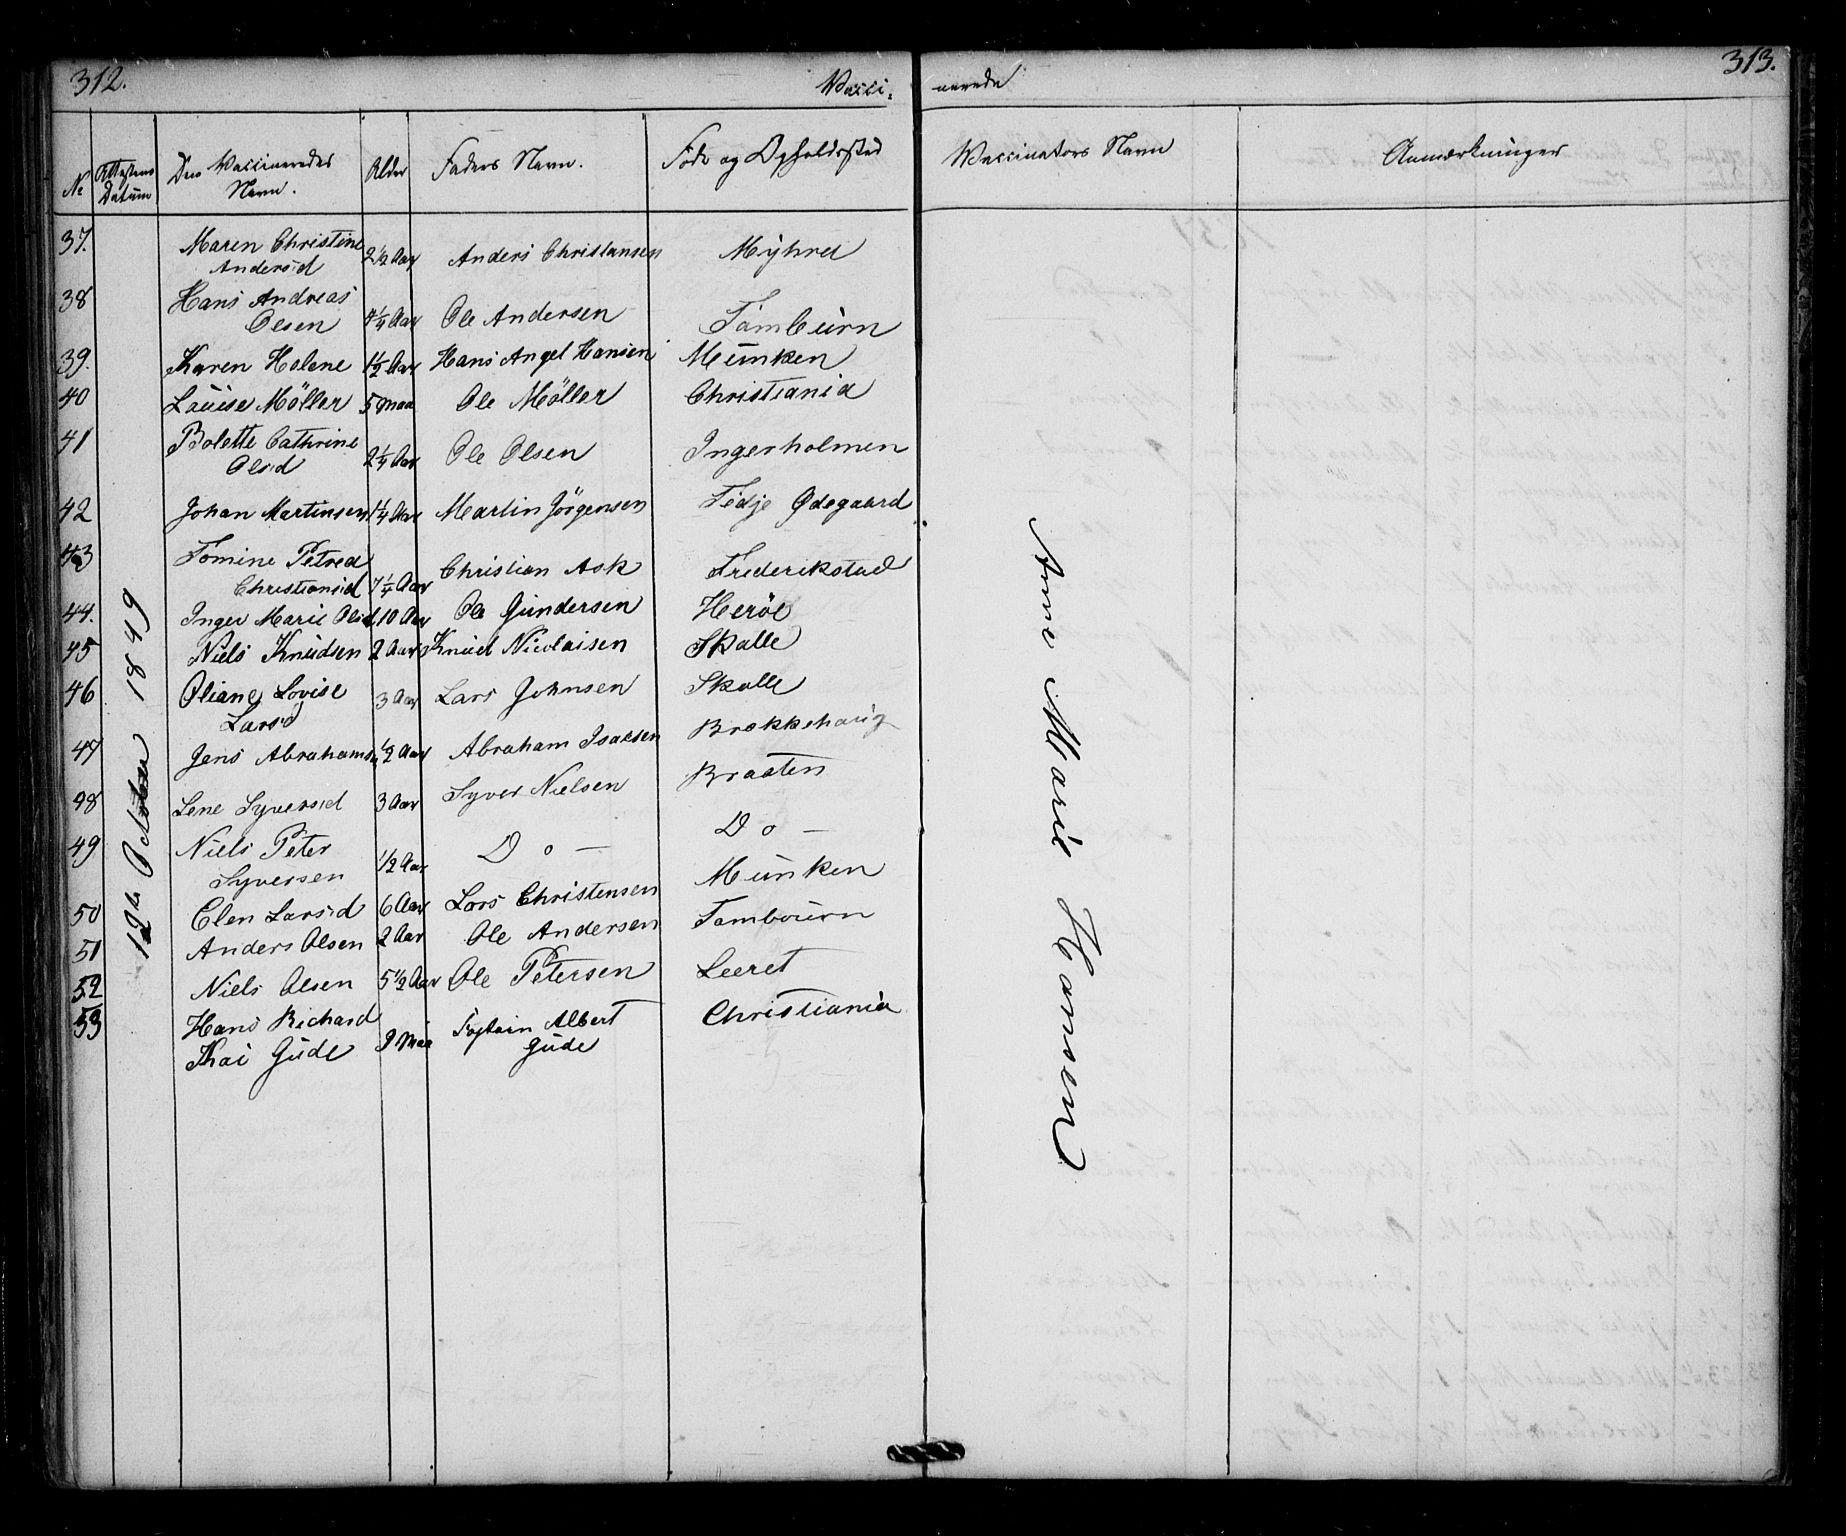 312.
Vacci-
nerede
313.
No
Attestens Datum
Den Vaccineredes Navn.
Alder
Faders Navn.
Føde og Opholdssted
Vaccinators Navn
Anmærkninger
12te October 1849
37. Maren Christine 2½ Aar Anders Christiansen Myhra
Andersd
38 Hans Andreas
Olsen 4¼ Aar Ole Andersen Tambùrn
39. Karen Helene 1½ Aar Hans Angel Hansen Mùnken
40 Loùise Möller 5 Maa Ole Möller Christiania
41 Bolette Cathrine
Olsd 2¼ Aar Ole Olsen Ingerholmen
42 Johan Martinsen 1¼ Aar Martin Jörgensen Tedje Ødegaard
43 Tomine Petrea
Christiansd 7¼ Aar Christian Ask Frederikstad
44. Inger Marie Olsd 10 Aar Ole Gùndersen Heröe
45 Niels Knùdsen 2 Aar Knùd Nicolaisen Skalle
46 Oliane Lovise 3 Aar Lars Johnsen Skalle
Larsd
47 Jens Abrahamsn ½ Aar Abraham Isacsen Brækkehaùg
48 Lene Syversd 3 Aar Syver Nielsen Braaten
49 Niels Peter
Syversen ½ Aar Do — Do —
50 Elen Larsd 6 Aar Lars Christensen Mùnken
51 Anders Olsen 2 Aar Ole Andersen Tamboùrn
52 Niels Olsen 5½ Aar Ole Petersen Leeret
53 Hans Richard
Thai Gùde 9 Maa Captain Albert Gùde Christiania
Anne Marie Hansen